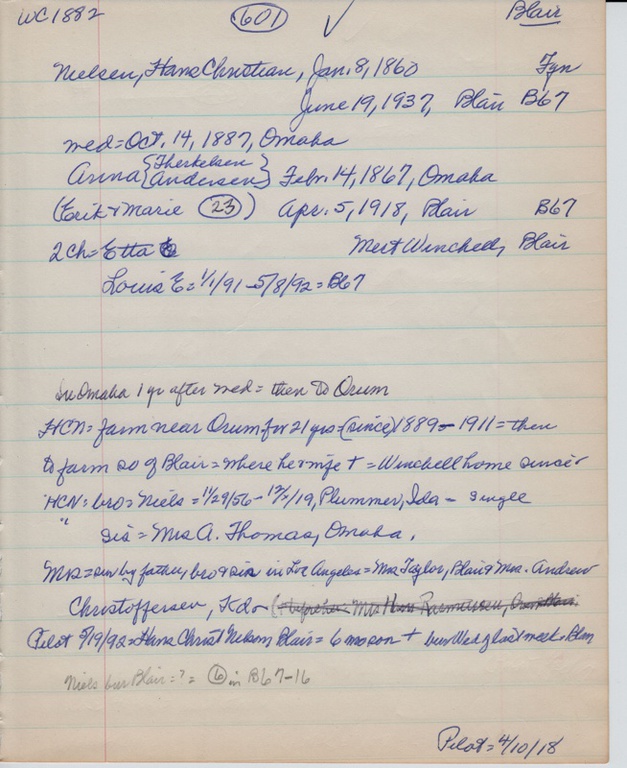 WC1882 601 ✓ Blair
Nielsen, Hans Christian, Jan. 8, 1860 Fyn
June 19, 1937, Blair B67
med = Oct. 14, 1887, Omaha
Anna {Therkelsen
Andersen} Febr. 14, 1867, Omaha
(Erik & Marie 23) Apr. 5, 1918, Blair B67
2 Ch = Etta Mert Winchell, Blair
Louis E = 1/1/91 - 5/8/92 = B67
In Omaha 1 yr after med = then to Orum
HCN = farm near Orum for 21 yrs = (since) 1889 - 1911 = then
to farm so of Blair = where he & wife + = Winchell home since
HCN = bro = Niels = 11/29/56 - /19, Plummer, Ida - single
" sis = Mrs A. Thomas, Omaha.
Mrs = sur by father, bro & sis in Los Angeles = Mrs Taylor, Blair & Mrs. Andrew
Christoffersen, Kdr Mrs Hans Rasmussen,
Pilot 5/19/92 = Hans Christ Nielsen Blair = 6 mo son + bur Wed of last week Blm
Niels bur Blair = ? = 6 in B67-16
Pilot = 4/10/18